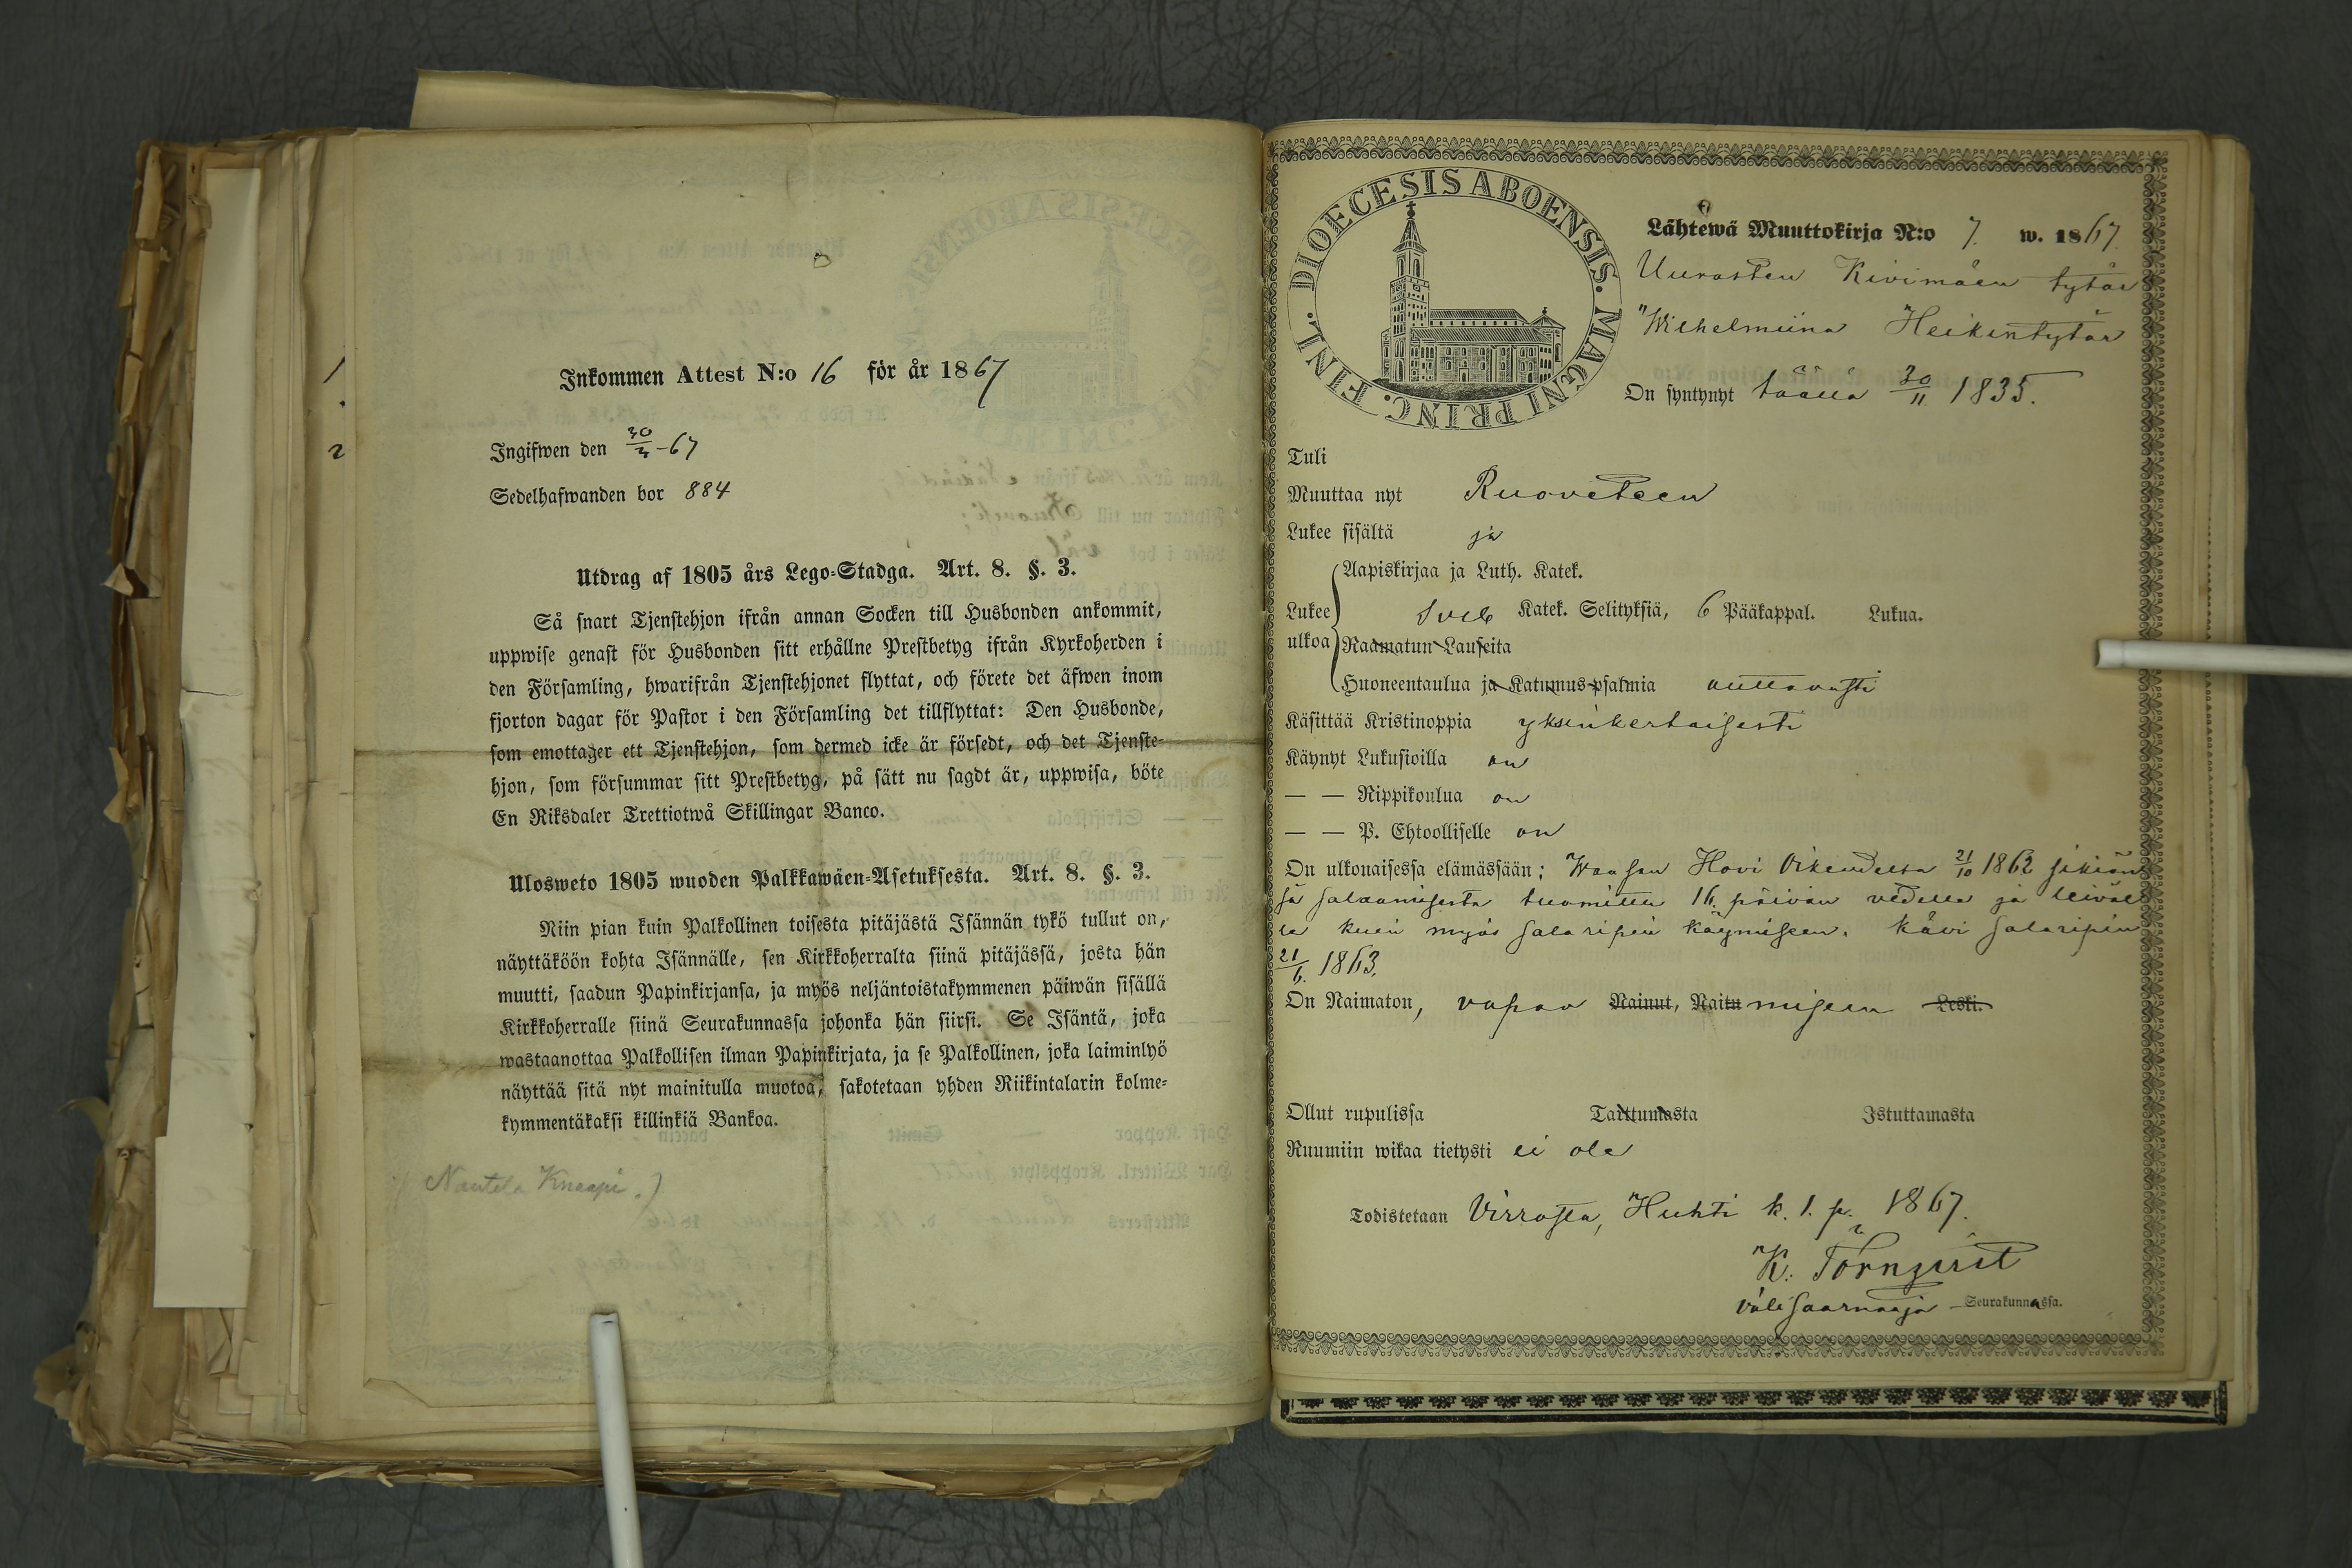 1
2
Inkommen Attest N:o 16 för år 1867
Ingifwen den 30/3-67
Sedelhafwanden bor 884
Utdrag af 1805 års Lego-Stadga. Art. 8. §. 3.
Så snart Tjenstehjon ifrån annan Socken till Husbonden ankommit,
uppwise genast för Husbonden sitt erhållne Prestbetyg ifrån Kyrkoherden i
den Församling, hwarifrån Tjenstehjonet flyttat, och förete det äfwen inom
fjorton dagar för Pastor i den Församling det tillflyttat: Den Husbonde,
som emottager ett Tjenstehjon, som dermed icke är försedt, och det Tjenste-
hjon, som försummar sitt Prestbetyg, på sätt nu sagdt är, uppwisa, böte
En Riksdaler Trettiotwå Skillingar Banco.
Ulosweto 1805 wuoden Palkkawäen-Asetuksesta. Art. 8. §. 3.
Niin pian kuin Palkollinen toisesta pitäjästä Isännän tykö tullut on,
näyttäköön kohta Isännälle, sen Kirkkoherralta siinä pitäjässä, josta hän
muutti, saadun Papinkirjansa, ja myös neljäntoistakymmenen päiwän sisällä
Kirkkoherralle siinä Seurakunnassa johonka hän siirsi. Se Isäntä, joka
wastaanottaa Palkollisen ilman Papinkirjata, ja se Palkollinen, joka laiminlyö
näyttää sitä nyt mainitulla muotoa, sakotetaan yhden Riikintalarin kolme-
kymmentäkaksi killinkiä Bankoa.
Nautela Knaapi.)
DIOECESIS ABOENSIS. MAGNI PRINC. FINL.
Lähtewä Muuttokirja N:o 7. w. 1867.
Uurasten Kivimäen tytär
Wilhelmiina Heikintytär
On syntynyt täällä 30/11 1835.
Tuli
Muuttaa nyt Ruoveteen
Lukee sisältä ja
Aapiskirjaa ja Luth. Katek.
Lukee Sveb Katek. Selityksiä, 6 Pääkappal. Lukua.
ulkoa Raamatun Lauseita
Huoneentaulua ja Katumus-psalmia auttavasti
Käsittää Kristinoppia yksinkertaisesti
Käynyt Lukusioilla on
— — Rippikoulua on
— — P. Ehtoolliselle on
On ulkonaisessa elämässään; Waasan Hovi Oikeudelta 21/10 1862 sikiön
sä salaamisesta tuomittu 16 päivän vedellä ja leiväl
lä kuin myös salaripin käymiseen. Kävi salaripin
21/6. 1863.
On Naimaton, vapaa Nainut, Naitu miseen Leski.
Ollut rupulissa Tarttumasta Istuttamasta
Ruumiin wikaa tietysti ei ole
Todistetaan Virroista, Huhti k. 1. p. 1867.
K. Törnqvist
väli saarnaaja Seurakunnassa.